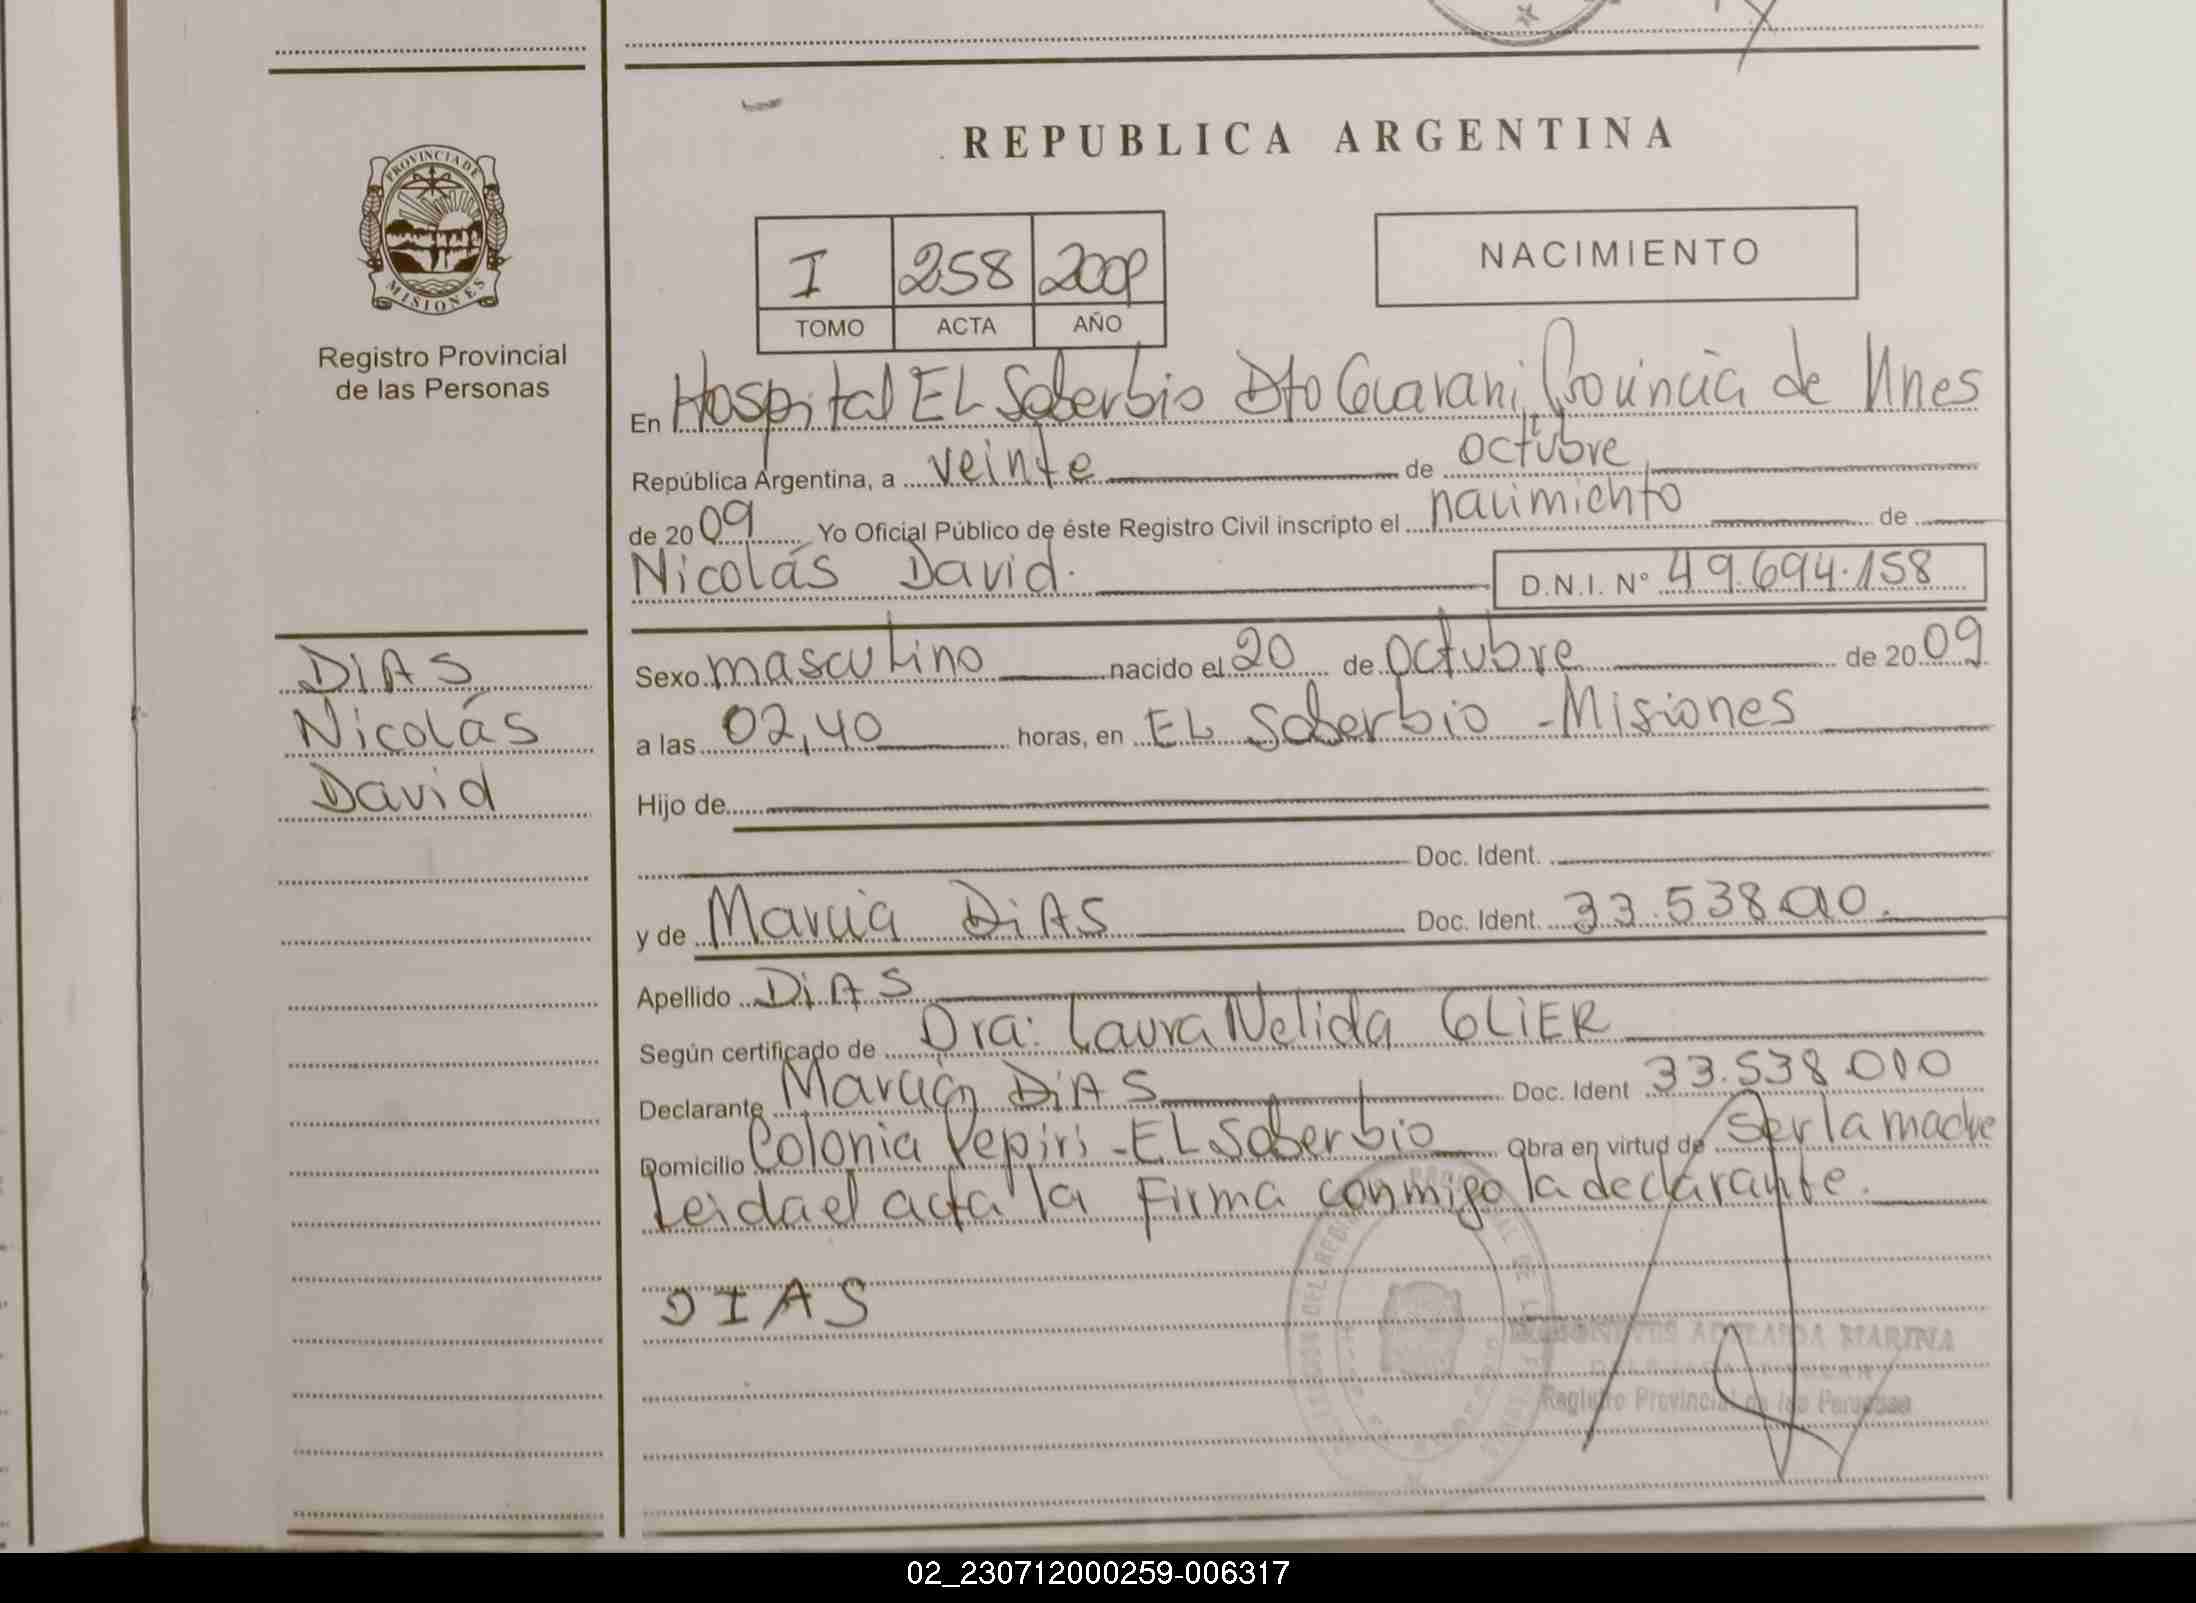 REPUBLICA ARGENTINA
PROVINCIA DE
MISIONES
Registro Provincial
de las Personas
I 258 2009
TOMO ACTA AÑO
NACIMIENTO
En Hospital EL Soberbio Dto Guarani, Provincia de Mnes
República Argentina, a veinte de octubre
de 2009 Yo Oficial Público de éste Registro Civil inscripto el nacimiento de
Nicolás David. D.N.I. Nº 49.694.158
DIAS
Nicolás
David
Sexo masculino nacido el 20 de octubre de 2009
a las 02,40 horas, en EL Soberbio - Misiones
Hijo de
Doc. Ident.
y de Marcia DiAS Doc. Ident. 33.538.010.
Apellido DiAS
Según certificado de Dra: Laura Nelida GLiER
Declarante Marcia DiAS Doc. Ident 33.538.010
Domicilio Colonia Pepiri - EL Soberbio Obra en virtud de ser la madre
Leida el acta la Firma conmigo la declarante.
DIAS
ADELAIDA MARINA
Registro Provincial de las Personas
02_230712000259-006317